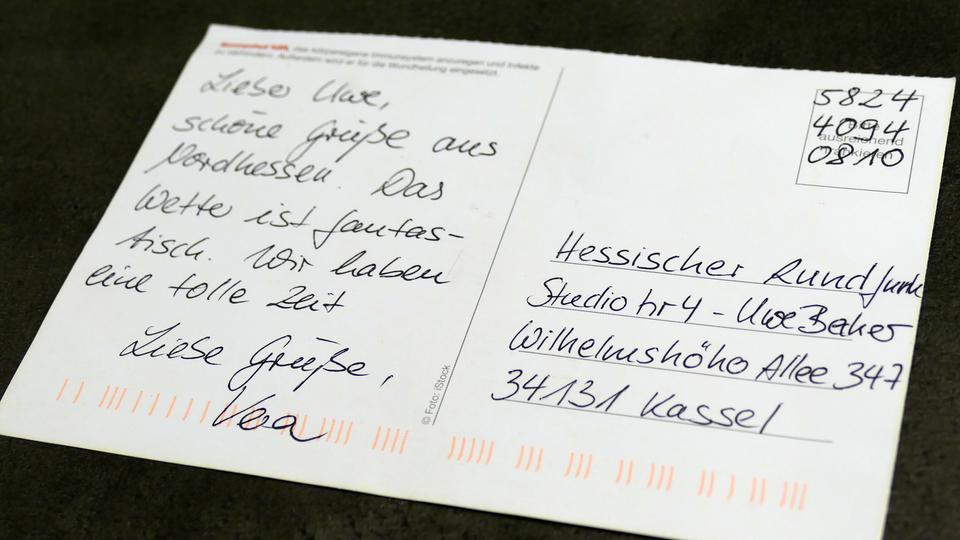 hilft, das körpereigene Immunsystem anzuregen und Infekte
zu verhindern. Außerdem wird er für die Wundheilung eingesetzt.
Lieber Uwe,
schöne Grüße aus
Nordhessen. Das
Wetter ist fantas-
tisch. Wir haben
eine tolle Zeit
Liebe Grüße,
Vera
© Foto: iStock
5824
4094
0810
ausreichend
Hessischer Rundfunk
Studio hr4 - Uwe Becker
Wilhelmshöher Allee 347
34131 Kassel